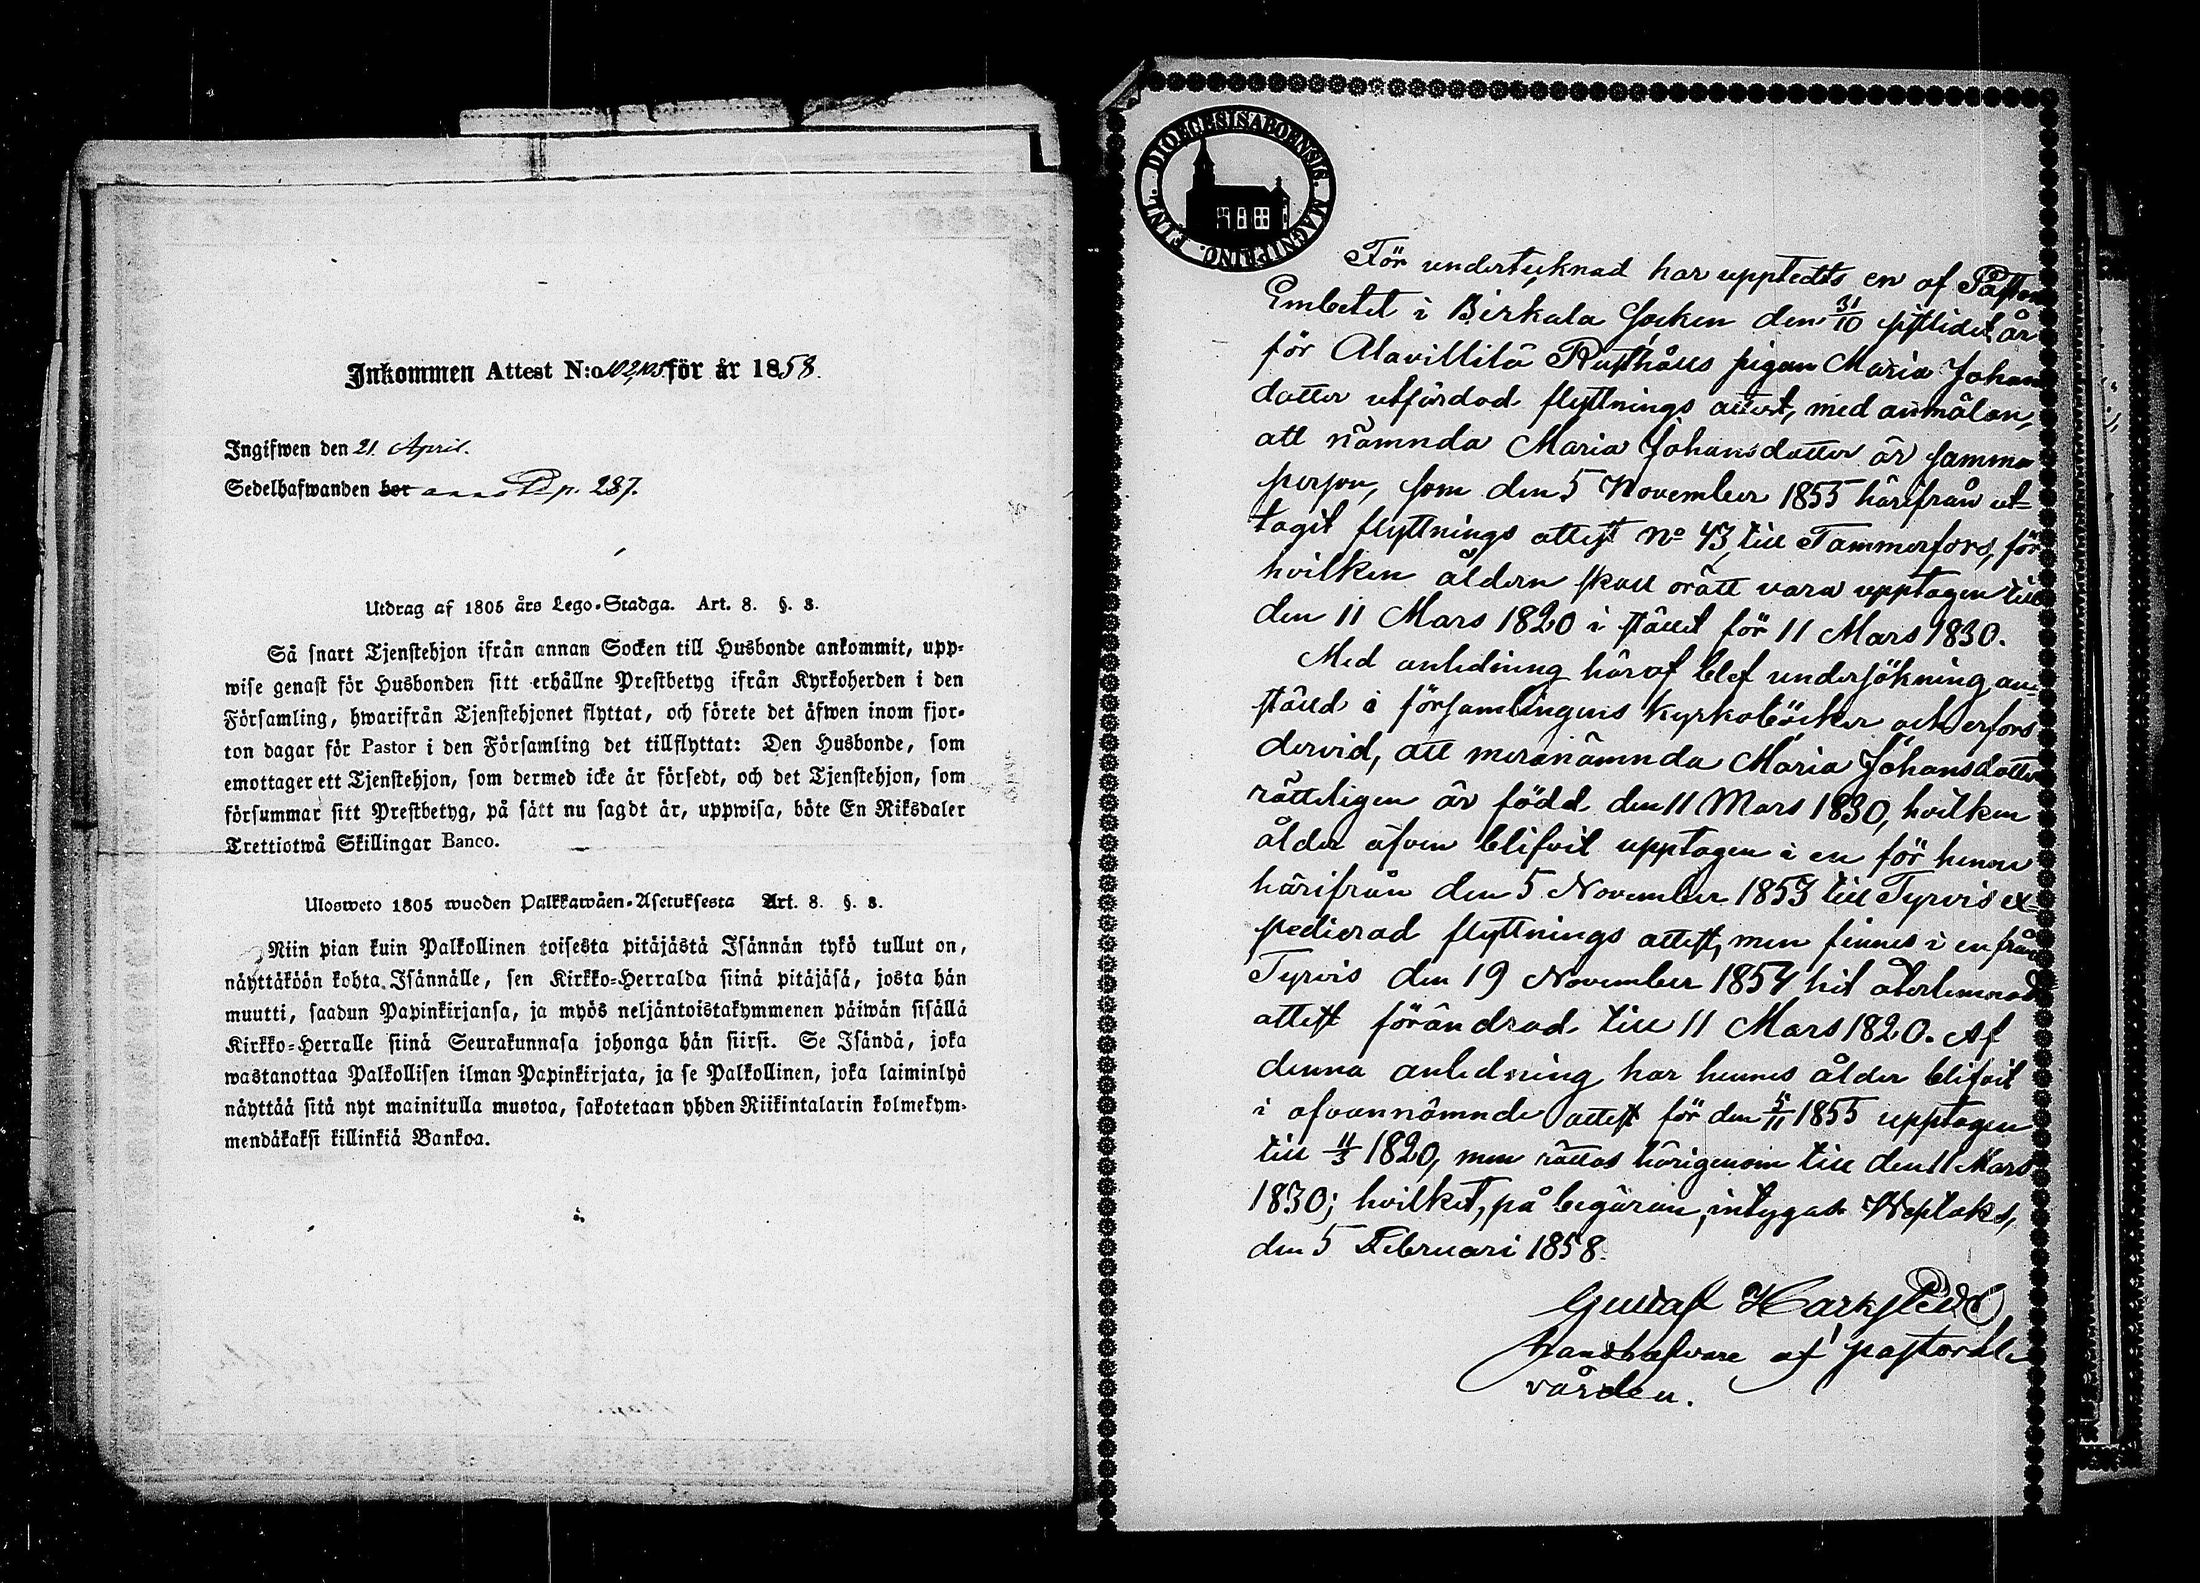 Inkommen Attest N:o 102,105 för år 1858.
Ingifwen den 21. April.
Sedelhafwanden bor p. 287.
Utdrag af 1805 års Lego-Stadga. Art. 8. §. 3.
Så snart Tjenstehjon ifrån annan Socken till Husbonde ankommit, upp-
wise genast för Husbonden sitt erhållne Prestbetyg ifrån Kyrkoherden i den
Församling, hwarifrån Tjenstehjonet flyttat, och förete det äfwen inom fjor-
ton dagar för Pastor i den Församling det tillflyttat: Den Husbonde, som
emottager ett Tjenstehjon, som dermed icke är försedt, och det Tjenstehjon, som
försummar sitt Prestbetyg, på sätt nu sagdt är, uppwisa, böte En Riksdaler
Trettiotwå Skillingar Banco.
Ulosweto 1805 wuoden Palkkawäen-Asetuksesta Art. 8. §. 3.
Niin pian kuin Palkollinen toisesta pitäjästä Isännän tykö tullut on,
näyttäköön kohta Isännälle, sen Kirkko-Herralda siinä pitäjäsä, josta hän
muutti, saadun Papinkirjansa, ja myös neljäntoistakymmenen päiwän sisällä
Kirkko-Herralle siinä Seurakunnasa johonga hän siirsi. Se Isändä, joka
wastanottaa Palkollisen ilman Papinkirjata, ja se Palkollinen, joka laiminlyö
näyttää sitä nyt mainitulla muotoa, sakotetaan yhden Riikintalarin kolmekym-
mendäkaksi killinkiä Bankoa.
DIOECESIS ABOENSIS. MAGNI PRINC. FINL.
För undertecknad har upptedts en af Pastors
Embetet i Birkala Socken den 31/10 sistlidet år
för Alavillilä Rusthålls pigan Maria Johans
dotter utfärdad flyttnings attest, med anmälan,
att nämnda Maria Johansdotter är samma
person, som den 5 November 1855 härifrån ut-
tagit flyttnings attest No 43 till Tammerfors, för
hvilken åldern skall orätt vara upptagen till
den 11 Mars 1820 i stället för 11 Mars 1830.
Med anledning häraf blef undersökning an-
stäld i församlingens Kyrkoböcker och erfors
dervid, att meranämnda Maria Johansdotter
rätteligen är född den 11 Mars 1830, hvilken
ålder äfven blifvit upptagen i en för henne
härifrån den 5 November 1853 till Tyrvis ex-
pedierad flyttnings attest, men finnes i en från
Tyrvis den 19 November 1854 hit återlemnad
attest förändrad till 11 Mars 1820. Af
denna anledning har hennes ålder blifvit
i ofvannämnde attest för den 5/11 1855 upptagen
till 11/3 1820, men rättas härigenom till den 11 Mars
1830; hvilket, på begäran, intygas. Weplaks,
den 5 Februari 1858.
Gustaf
handhafvare af pastoral
vården.